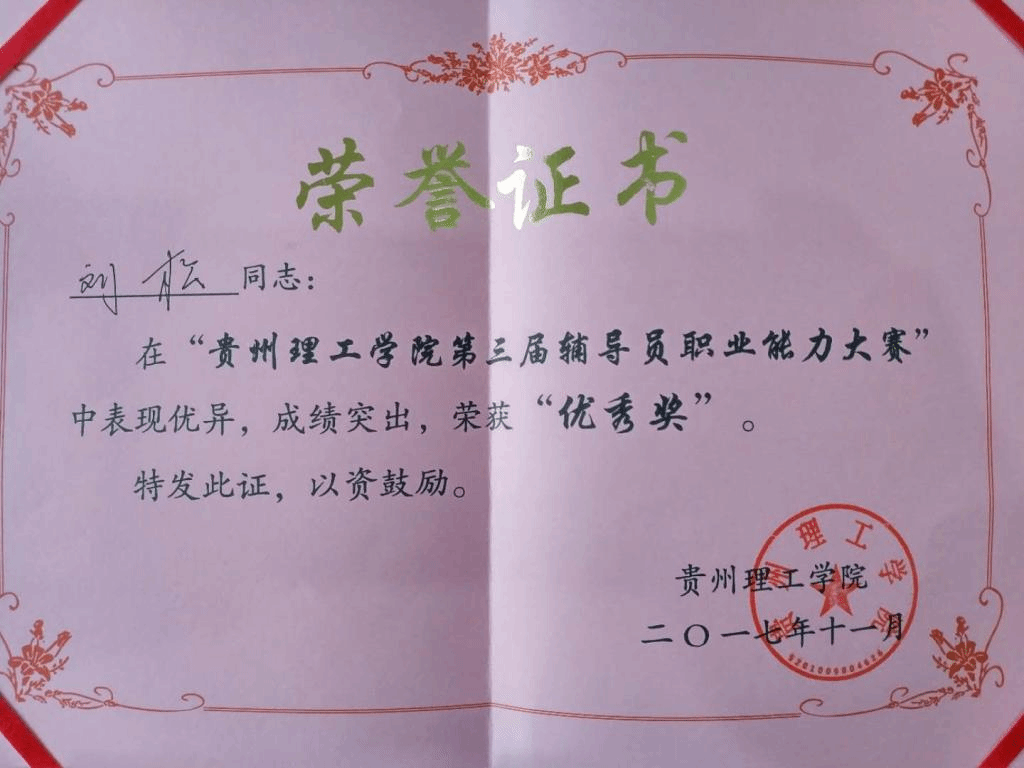 荣誉证书
刘松同志：
在“贵州理工学院第三届辅导员职业能力大赛”
中表现优异，成绩突出，荣获“优秀奖”。
特发此证，以资鼓励。
贵州理工学院
二〇一七年十一月
贵州理工学院